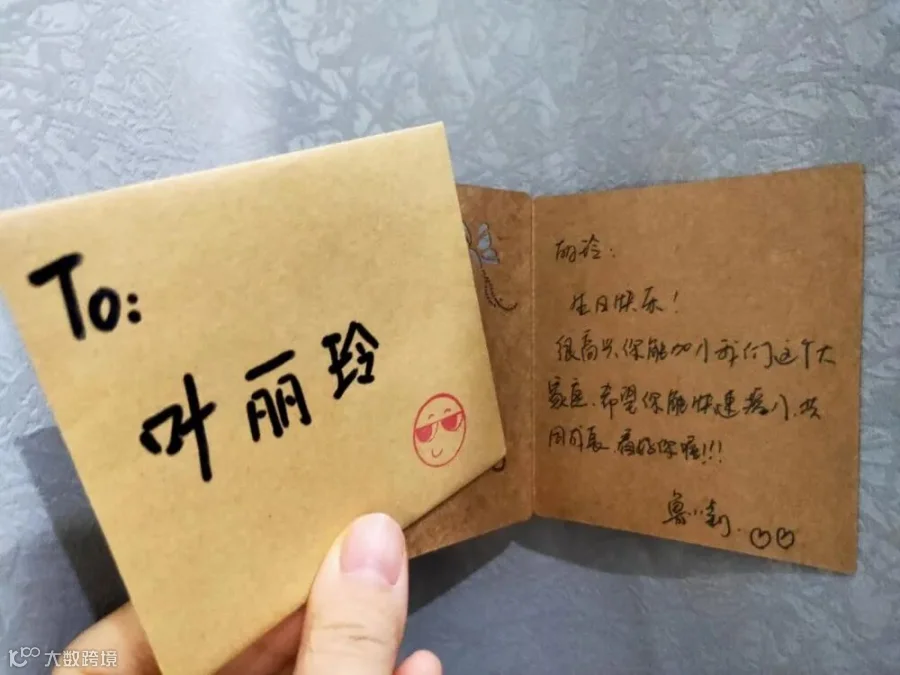 To:
叶丽玲
丽玲:
生日快乐!
很高兴你能加入我们这个大
家庭、希望你能快速融入、共
同成长 看好你喔!!!
大数跨境